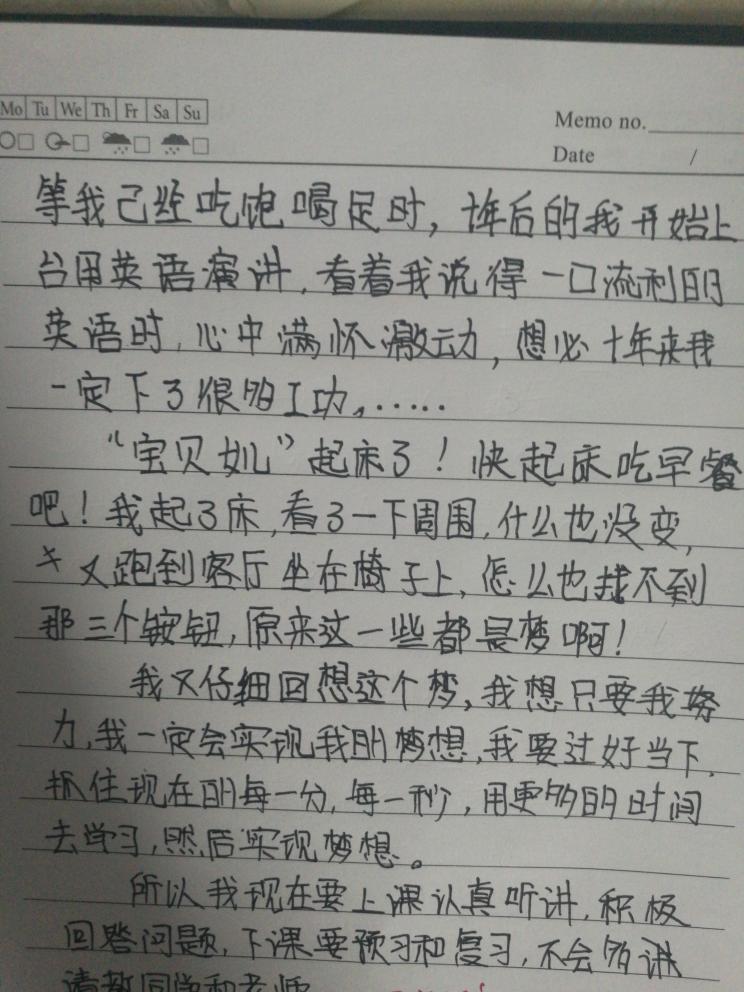 Mo Tu We Th Fr Sa Su
Memo no.
Date /
等我已经吃饱喝足时，十年后的我开始上
台用英语演讲，看着我说得一口流利的
英语时，心中满怀激动，想必十年来我
一定下了很多工功，……
“宝贝女儿”起床了！快起床吃早餐
吧！我起了床，看了一下周围，什么也没变，
又跑到客厅坐在椅子上，怎么也找不到
那三个按钮，原来这一些都是梦啊！
我又仔细回想这个梦，我想只要我努
力，我一定会实现我的梦想，我要过好当下，
抓住现在的每一分，每一秒，用更多的时间
去学习，然后实现梦想。
所以我现在要上课认真听讲，积极
回答问题，下课要预习和复习，不会多讲
请教同学和老师